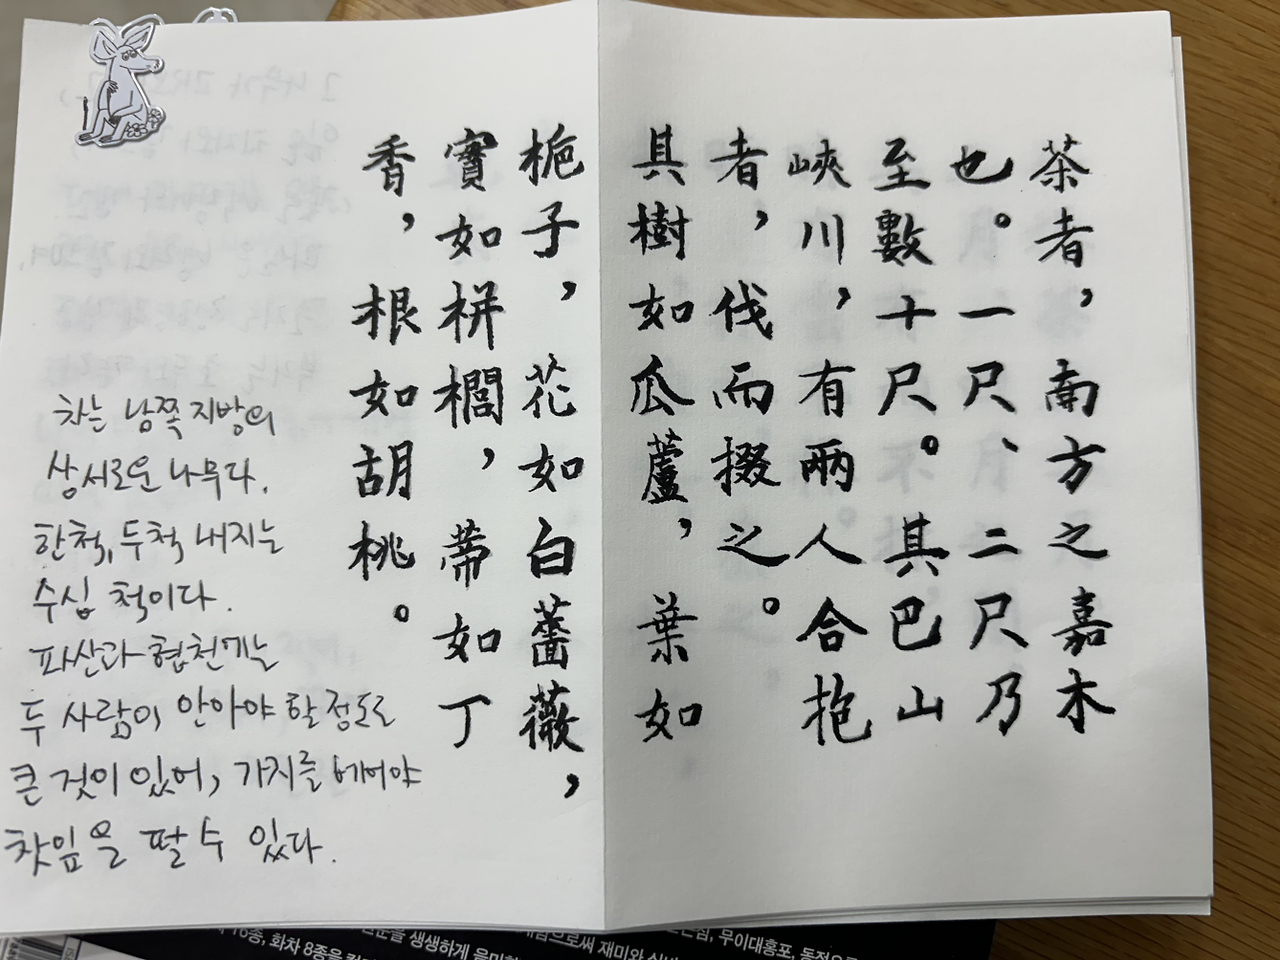 茶者，南方之嘉木
也。一尺、二尺乃
至數十尺。其巴山
峽川，有兩人合抱
者，伐而掇之。
其樹如瓜蘆，葉如
梔子，花如白薔薇，
實如栟櫚，蒂如丁
香，根如胡桃。
차는 남쪽 지방의
상서로운 나무다.
한척, 두척, 내지는
수십 척이다.
파산과 협천에는
두 사람이 안아야 할 정도로
큰 것이 있어, 가지를 베어야
찻잎을 딸 수 있다.
화차 8종을 생생하게 재미와 무이대홍포,